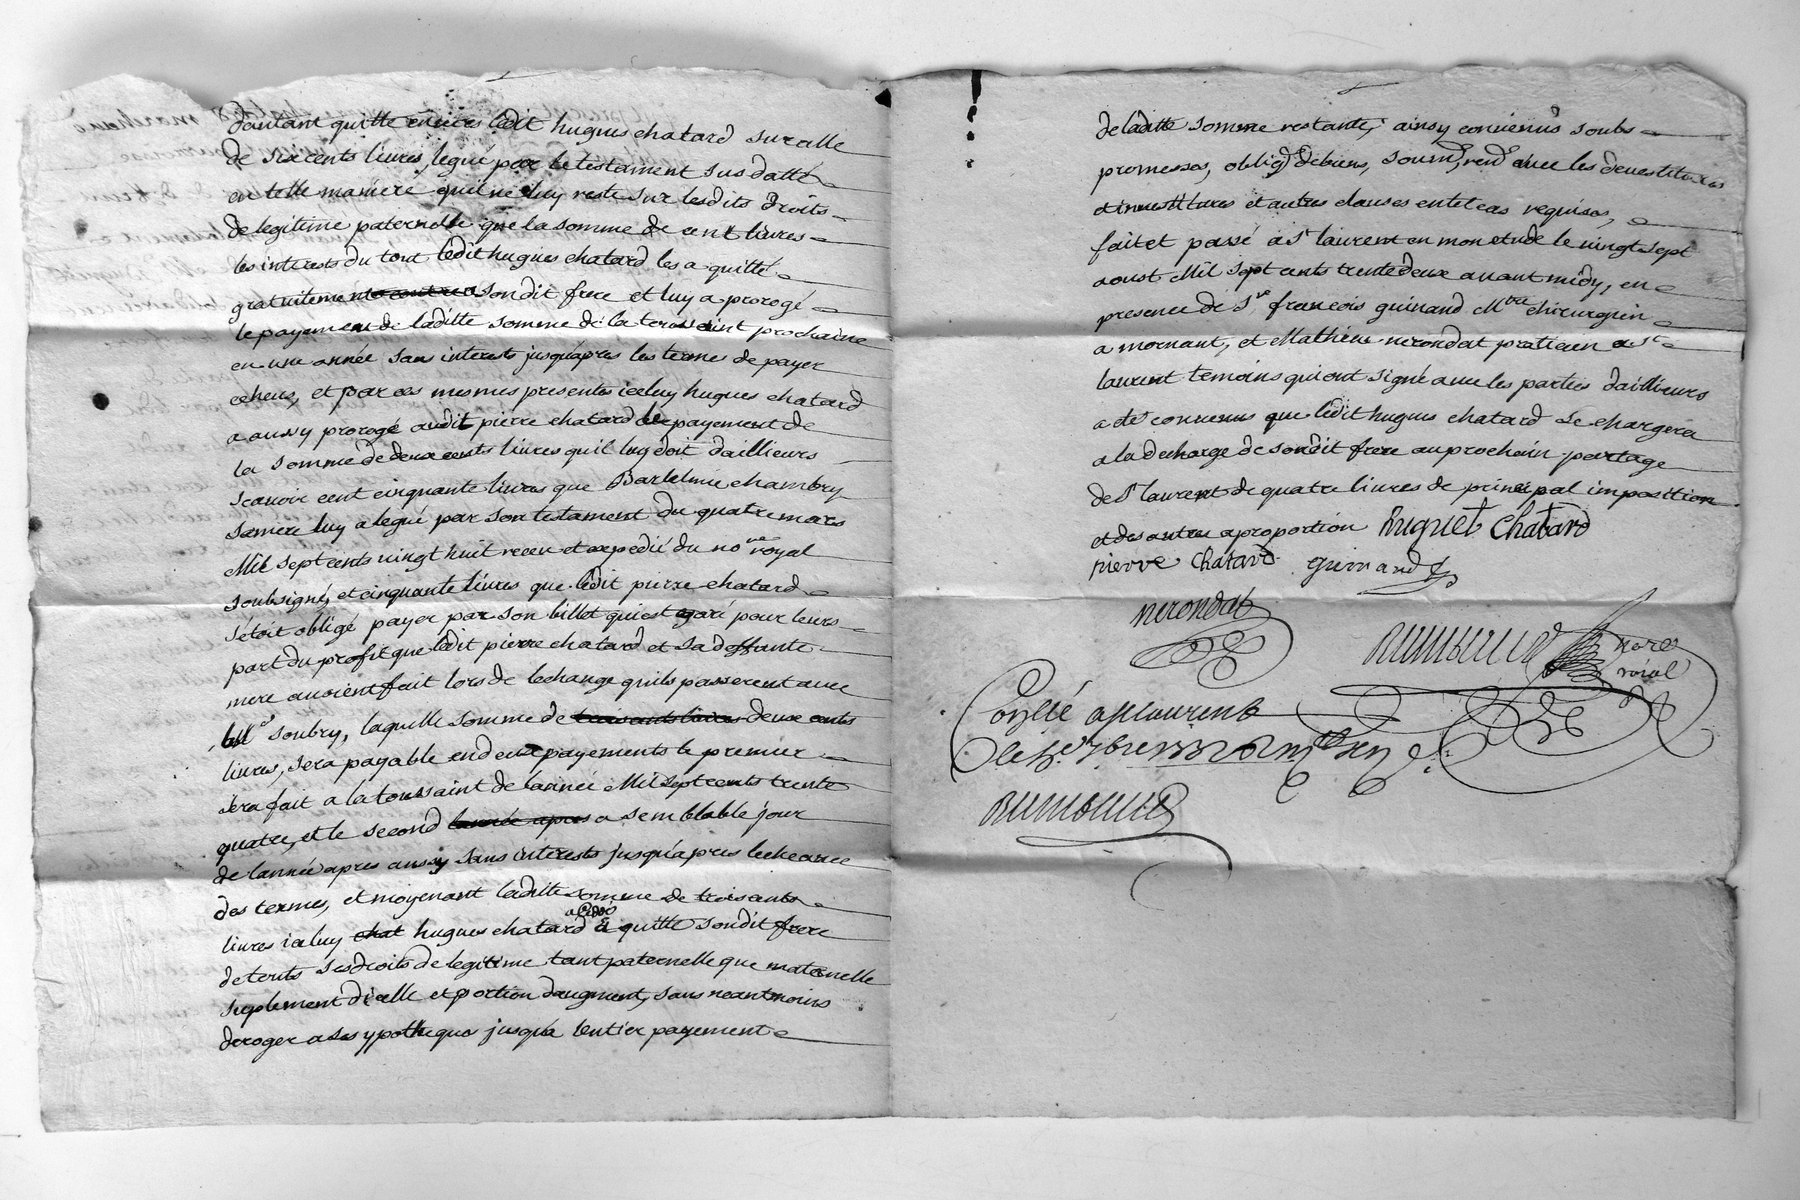 dautant quitte envers ledit hugues chatard sur celle
de six cents livres, legué par le testament sus datté
en telle maniere quil ne luy reste sur lesdits droits
de legitime paternelle que la somme de cent livres
les interests du tout ledit hugues chatard les a quitté
gratuitement sondit frere et luy a prorogé
le payement de laditte somme de la toussaint prochaine
en une année sans interests jusquapres les terme de payer
echeus, et par ces mesmes presentes iceluy hugues chatard
a aussy prorogé audit pierre chatard le payement de
la somme de deux cents livres quil luy doit dailleurs
scavoir cent cinquante livres que Bartelmie chambry
sa mere luy a legué par son testament du quatre mars
Mil sept cents vingt huit receu et expedié du no.re royal
soubsigné, et cinquante livres que ledit pierre chatard
setoit obligé payer par son billet qui est egaré pour leurs
part du profit que ledit pierre chatard et sa deffunte
mere avoient fait lors de lechange quils passerent avec
soubry, laquelle somme de trois cents livres deux cents
livres, sera payable en deux payements le premier
sera fait a la toussaint de lannée Mil sept cents trente
quatre, et le second lannée apres a semblable jour
de lannée apres aussy sans interests jusquapres lecheance
des termes, et moyenant laditte somme de trois cents
livres iceluy chat hugues chatard a quitté sondit frere
de touts ses droits de legitime tant paternelle que maternelle
suplement dicelle et portion daugment, sans neantmoins
deroger a ses ypotheques jusqua lentier payement
de laditte somme restante, ainsy convenus soubs
promesses, oblig.on de biens, soum.on, ren.on avec les devestitures
et investitures et autres clauses en tel cas requises,
fait et passé a S.t laurent en mon etude le vingt sept
aoust Mil sept cents trente deux avant midy, en
presence de S.r francois guinand M.tre chirurgien
a mornant, et Mathieu nerondat praticien a S.t
laurent temoins qui ont signé avec les parties dailleurs
a eté convenus que ledit hugues chatard se chargera
a la decharge de sondit frere au prochain partage
de S.t laurent de quatre livres de principal imposition
et des autres a proportion huguet Chatard
pierre chatard guinand
nerondat
no.re
roial
Conllé a S.t laurent